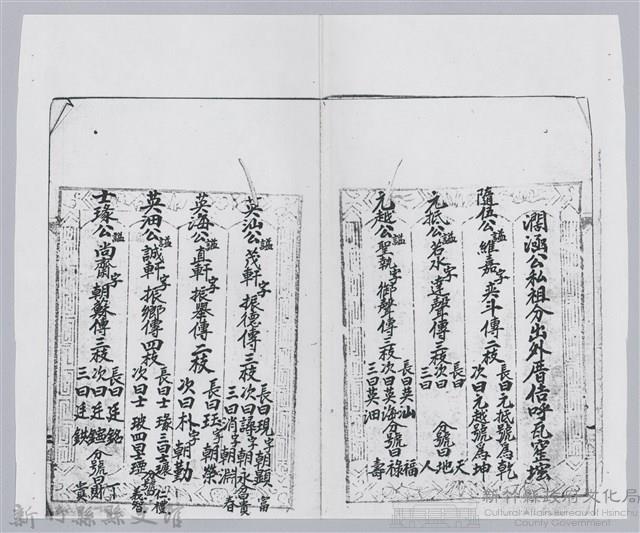 濶涵公私祖分出外厝俗呼瓦窑坛
隨伍公諡維嘉字奕斗傳二枝 長曰元抵號為乾 次曰元越號為坤
元抵公諡若水字達聲傳三枝 長曰 次曰 三曰 分號曰 天 地 人
元越公諡聖執字衛聲傳三枝 長曰英汕 次曰英海 三曰英油 分號曰 福 祿 壽
英汕公諡茂軒字振德傳三枝 長曰現字朝顯 次曰諱字朝水 三曰消字朝淵 富 貴 春
英海公諡直軒字振舉傳二枝 長曰珏字朝榮 次曰朴字朝勤
英油公諡誠軒字振鄉傳四枝 長曰士瑑 次曰士玻 三曰士 四曰 仁 禮 義 智
士瑑公諡尚齋字朝蘇傳三枝 長曰廷銘 次曰廷 三曰廷鉄 分號曰 丁 財 貴
新竹縣縣史館
新竹縣政府文化局
Cultural Affairs Bureau of Hsinchu
County Government